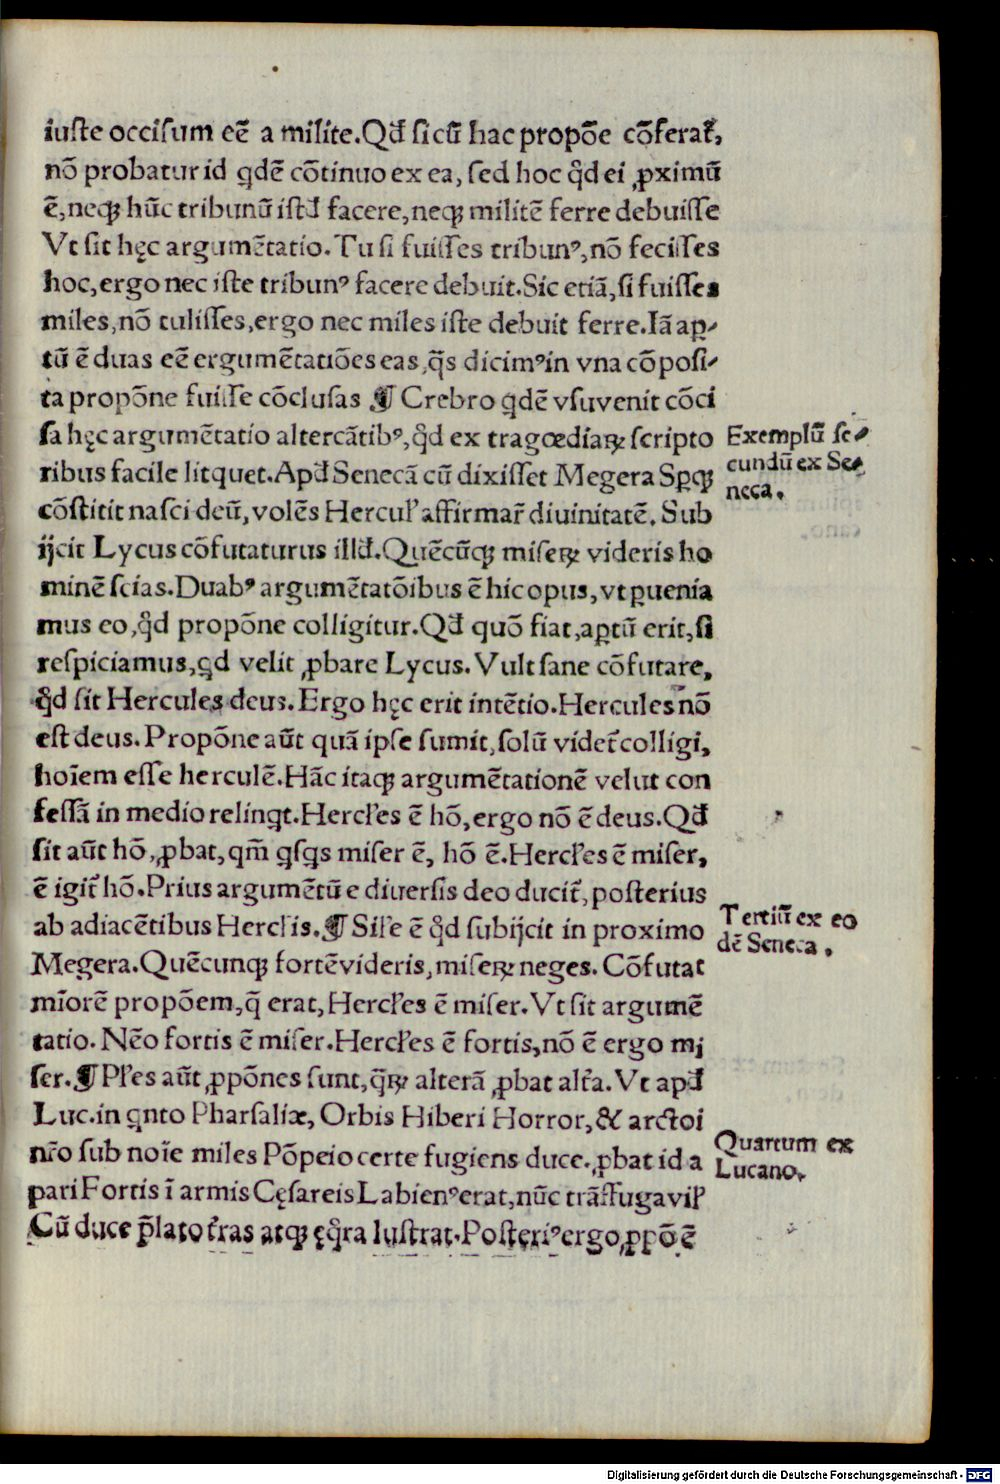 iuste occisum eē a milite. Qd̄ si cū hac propōe cōferat̄,
nō probatur id qdē cōtinuo ex ea, sed hoc qd̄ ei ꝓximū
ē, neqꝫ hūc tribunū istd̄ facere, neqꝫ militē ferre debuisse
Vt sit hęc argumētatio. Tu si fuisses tribunꝰ, nō fecisses
hoc, ergo nec iste tribunꝰ facere debuit. Sic etiā, si fuisses
miles, nō tulisses, ergo nec miles iste debuit ferre. Iā aꝑ-
tū ē duas eē ergumētatiōes eas, q̄s dicimꝰ in vna cōposi-
ta propōne fuisse cōclusas ¶ Crebro qdē vsuvenit cōci
sa hęc argumētatio altercātibꝰ, qd̄ ex tragœdiaꝝ scripto
ribus facile litquet. Apd̄ Senecā cū dixisset Megera Sꝑqꝫ
cōstitit nasci deū, volēs Herculꝭ affirmar̄ diuinitatē. Sub
ijcit Lycus cōfutaturus illd̄. Quēcūqꝫ miseꝝ videris ho
minē scias. Duabꝰ argumētatōibus ē hic opus, vt ꝑuenia
mus eo, qd̄ propōne colligitur. Qd̄ quō fiat, aꝑtū erit, si
respiciamus, qd velit ꝓbare Lycus. Vult sane cōfutare,
qd̄ sit Hercules deus. Ergo hęc erit intētio. Hercules nō
est deus. Propōne aūt quā ipse sumit, solū videt̄ colligi,
hoīem esse herculē. Hāc itaqꝫ argumētationē velut con
fessā in medio relinqt. Hercɫes ē hō, ergo nō ē deus. Qd̄
sit aūt hō, ꝓbat, qm̄ qsqs miser ē, hō ē. Hercɫes ē miser,
ē igit̄ hō. Prius argumētū e diuersis deo ducit̄, posterius
ab adiacētibus Hercɫis. ¶ Siɫe ē qd̄ subijcit in proximo
Megera. Quēcunqꝫ fortē videris, miseꝝ neges. Cōfutat
mīorē propōem, q̄ erat, Hercɫes ē miser. Vt sit argumē
tatio. Nēo fortis ē miser. Hercɫes ē fortis, nō ē ergo mj
ser. ¶ Pɫes aūt ꝓpōnes sunt, q̄ꝝ alterā ꝓbat alt̄a. Vt apd̄
Luc. in qnto Pharsaliæ, Orbis Hiberi Horror, & arctoi
nr̄o sub noīe miles Pōpeio certe fugiens duce. ꝓbat id a
pari Fortis ī armis Cęsareis Labienꝰ erat, nūc trāsfuga vilꝭ
Cū duce p̄lato t̄ras atqꝫ ęq̄ra lustrat. Posteriꝰ ergo ꝓpō ē
Exemplū se-
cundū ex Se-
neca.
Tertiū ex eo
dē Seneca.
Quartum ex
Lucano.
Digitalisierung gefördert durch die Deutsche Forschungsgemeinschaft - DFG